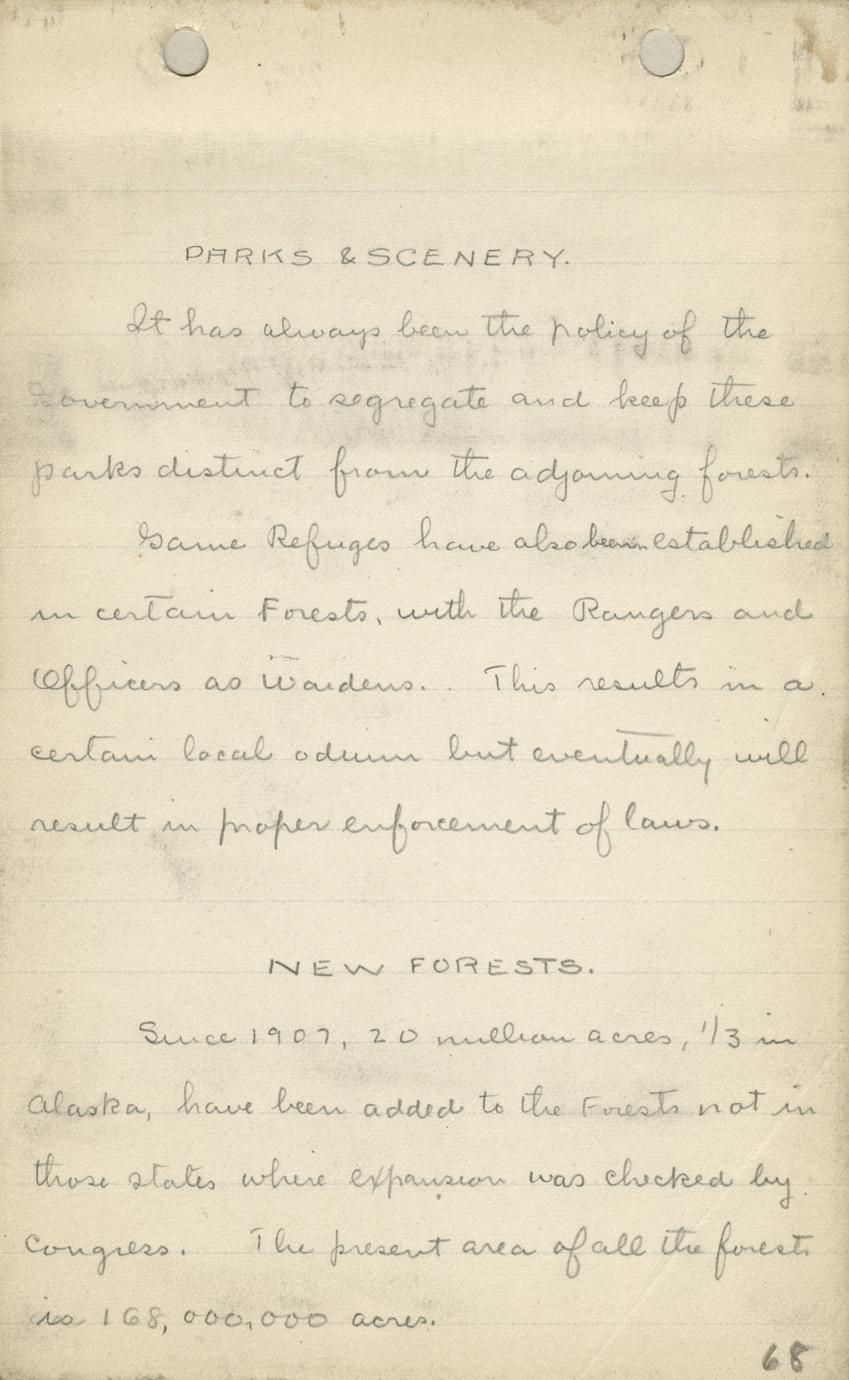 PARKS & SCENERY.
It has always been the policy of the
Government to segregate and keep these
parks distinct from the adjoining forests.
Game Refuges have also been established
in certain Forests, with the Rangers and
Officers as Wardens. This results in a
certain local odium but eventually will
result in proper enforcement of laws.
NEW FORESTS.
Since 1907, 20 million acres, 1/3 in
Alaska, have been added to the Forests not in
those states where expansion was checked by
Congress. The present area of all the forests
is 168,000,000 acres.
68